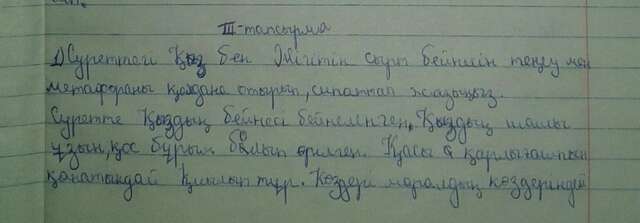 III-тапсырма
1) Суреттегі Қыз бен Жігітін сырт бейнесін теңеу мен
метафораны қолдана отырып, сипаттап жазыңыз.
Суретте Қыздың бейнесі бейнеленген. Қыздың шашы
ұзын, қос бұрым болып өрілген. Қасы қарлығаштың
қанатындай қиылып тұр. Көздері маралдың көздеріндей